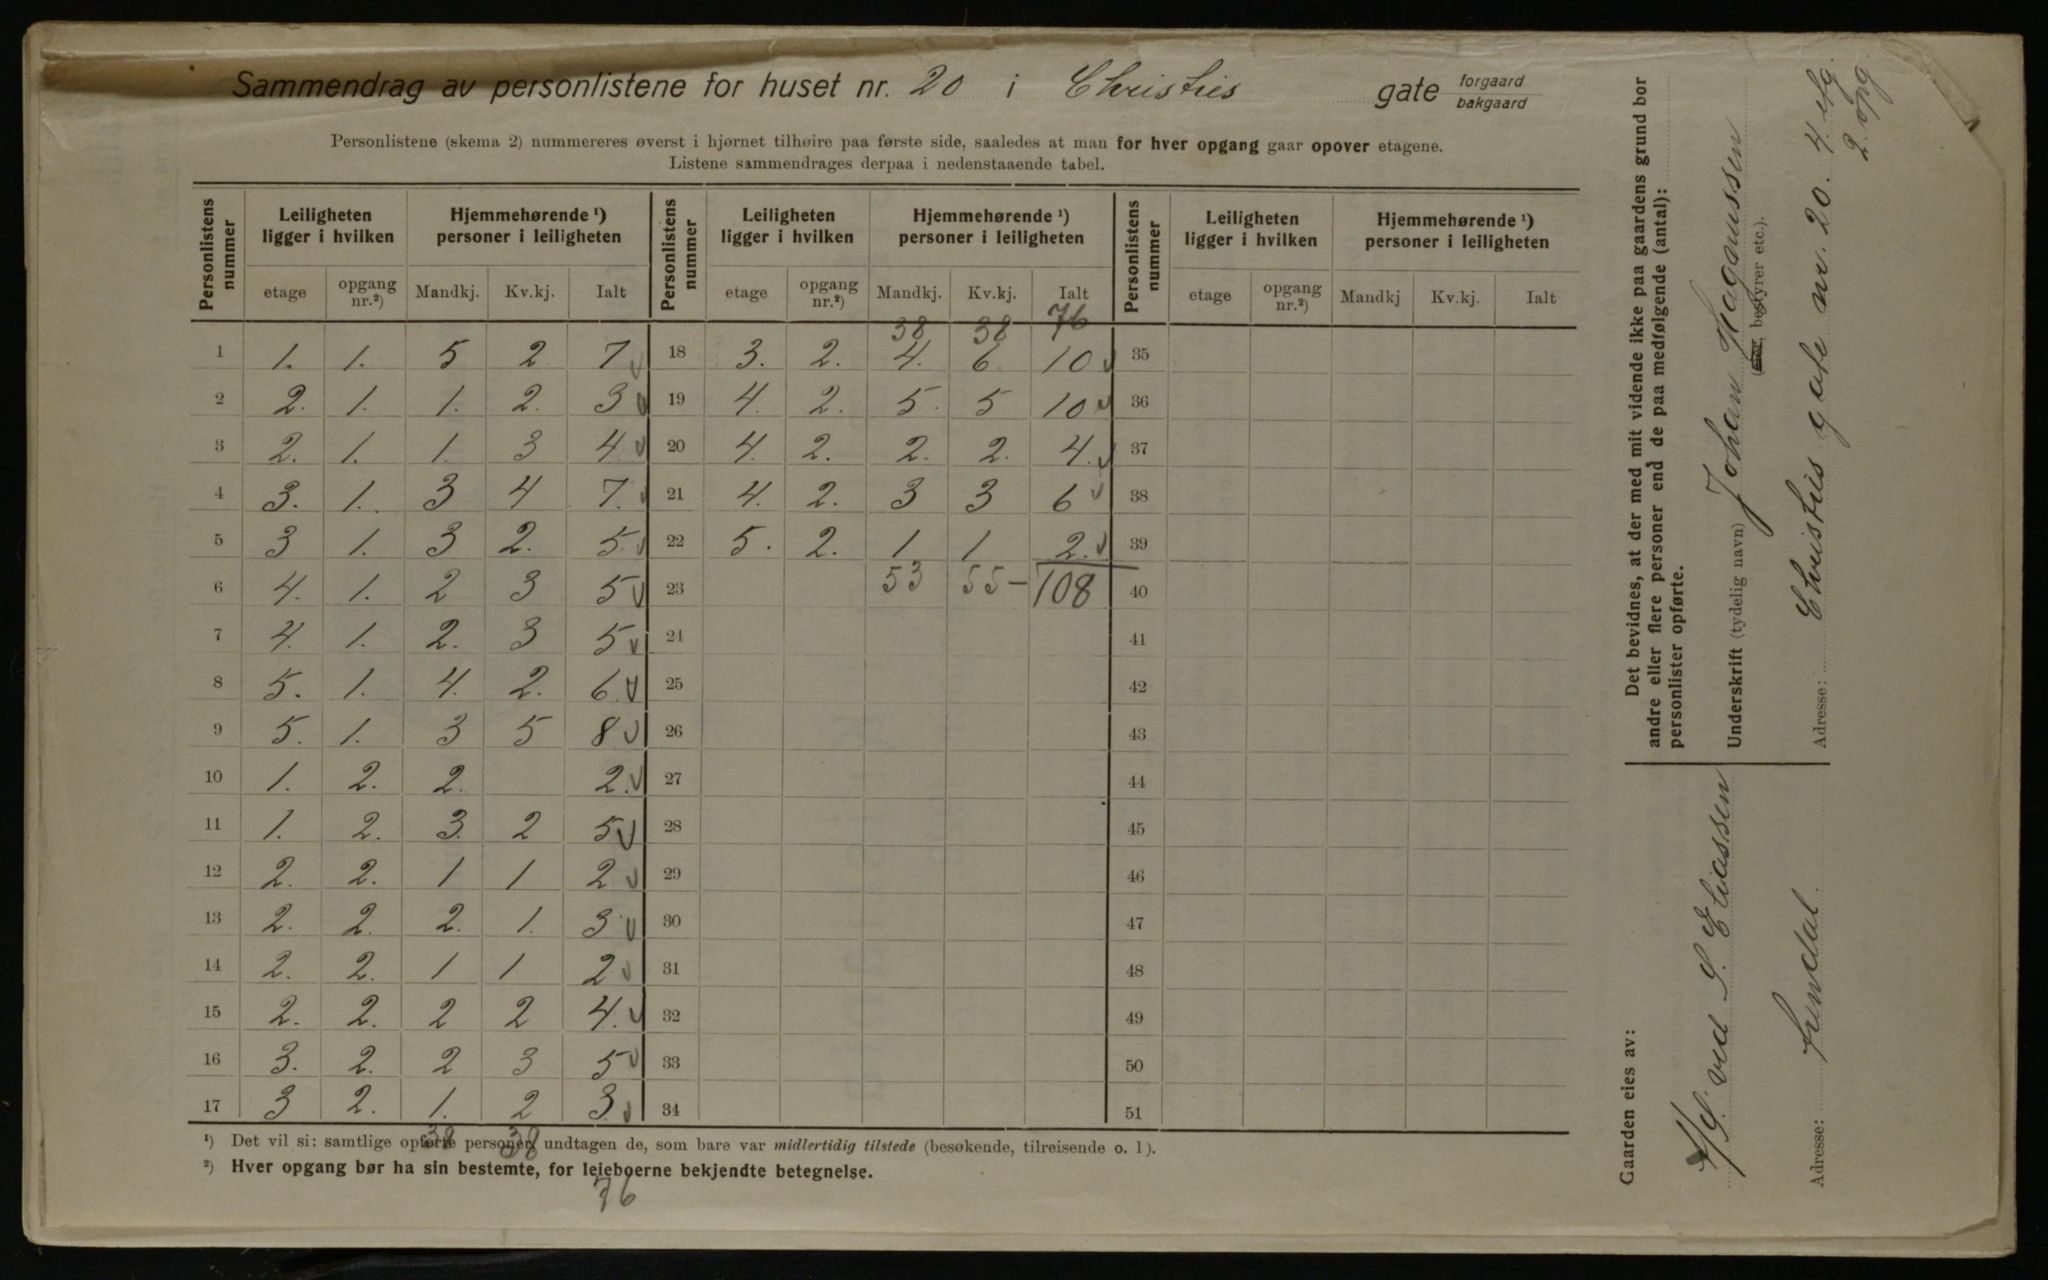 Sammendrag av personlistene for huset nr. 20 i Christies gate forgaard bakgaard
Personlistene (skema 2) nummereres øverst i hjørnet tilhøire paa første side, saaledes at man for hver opgang gaar opover etagene.
Listene sammendrages derpaa i nedenstaaende tabel.
Personlistens nummer | Leiligheten ligger i hvilken | Hjemmehørende ¹) personer i leiligheten | Personlistens nummer | Leiligheten ligger i hvilken | Hjemmehørende ¹) personer i leiligheten | Personlistens nummer | Leiligheten ligger i hvilken | Hjemmehørende ¹) personer i leiligheten
etage | opgang nr.²) | Mandkj. | Kv.kj. | Ialt | etage | opgang nr.²) | Mandkj. | Kv.kj. | Ialt | etage | opgang nr.²) | Mandkj | Kv.kj. | Ialt
38 38 76
1 1. 1. 5 2 7 18 3. 2. 4. 6. 10 35
2 2. 1. 1. 2. 3 19 4. 2. 5. 5 10 36
3 2. 1. 1. 3 4. 20 4. 2. 2. 2. 4. 37
4 3. 1. 3 4 7. 21 4. 2. 3 3 6 38
5 3 1. 3 2. 5. 22 5. 2. 1 1 2. 39
6 4. 1. 2 3 5 23 53 55 – 108 40
7 4. 1. 2. 3 5 24 41
8 5. 1. 4. 2. 6. 25 42
9 5. 1. 3 5 8 26 43
10 1. 2. 2. 2. 27 44
11 1. 2. 3. 2 5 28 45
12 2. 2. 1 1 2 29 46
13 2. 2. 2. 1. 3 30 47
14 2. 2. 1 1 2 31 48
15 2. 2. 2 2 4. 32 49
16 3. 2. 2 3 5 33 50
17 3 2. 1. 2 3. 34 51
38 38
76
¹) Det vil si: samtlige opførte personer, undtagen de, som bare var midlertidig tilstede (besøkende, tilreisende o. l).
²) Hver opgang bør ha sin bestemte, for leieboerne bekjendte betegnelse.
Det bevidnes, at der med mit vidende ikke paa gaardens grund bor
andre eller flere personer end de paa medfølgende (antal):
personlister opførte.
Underskrift (tydelig navn) Johan Hagmussen
bestyrer etc.).
Adresse: Christies gate nr. 20. 4. etg.
2. opg.
Gaarden eies av:
ved S. Eliassen
Adresse: